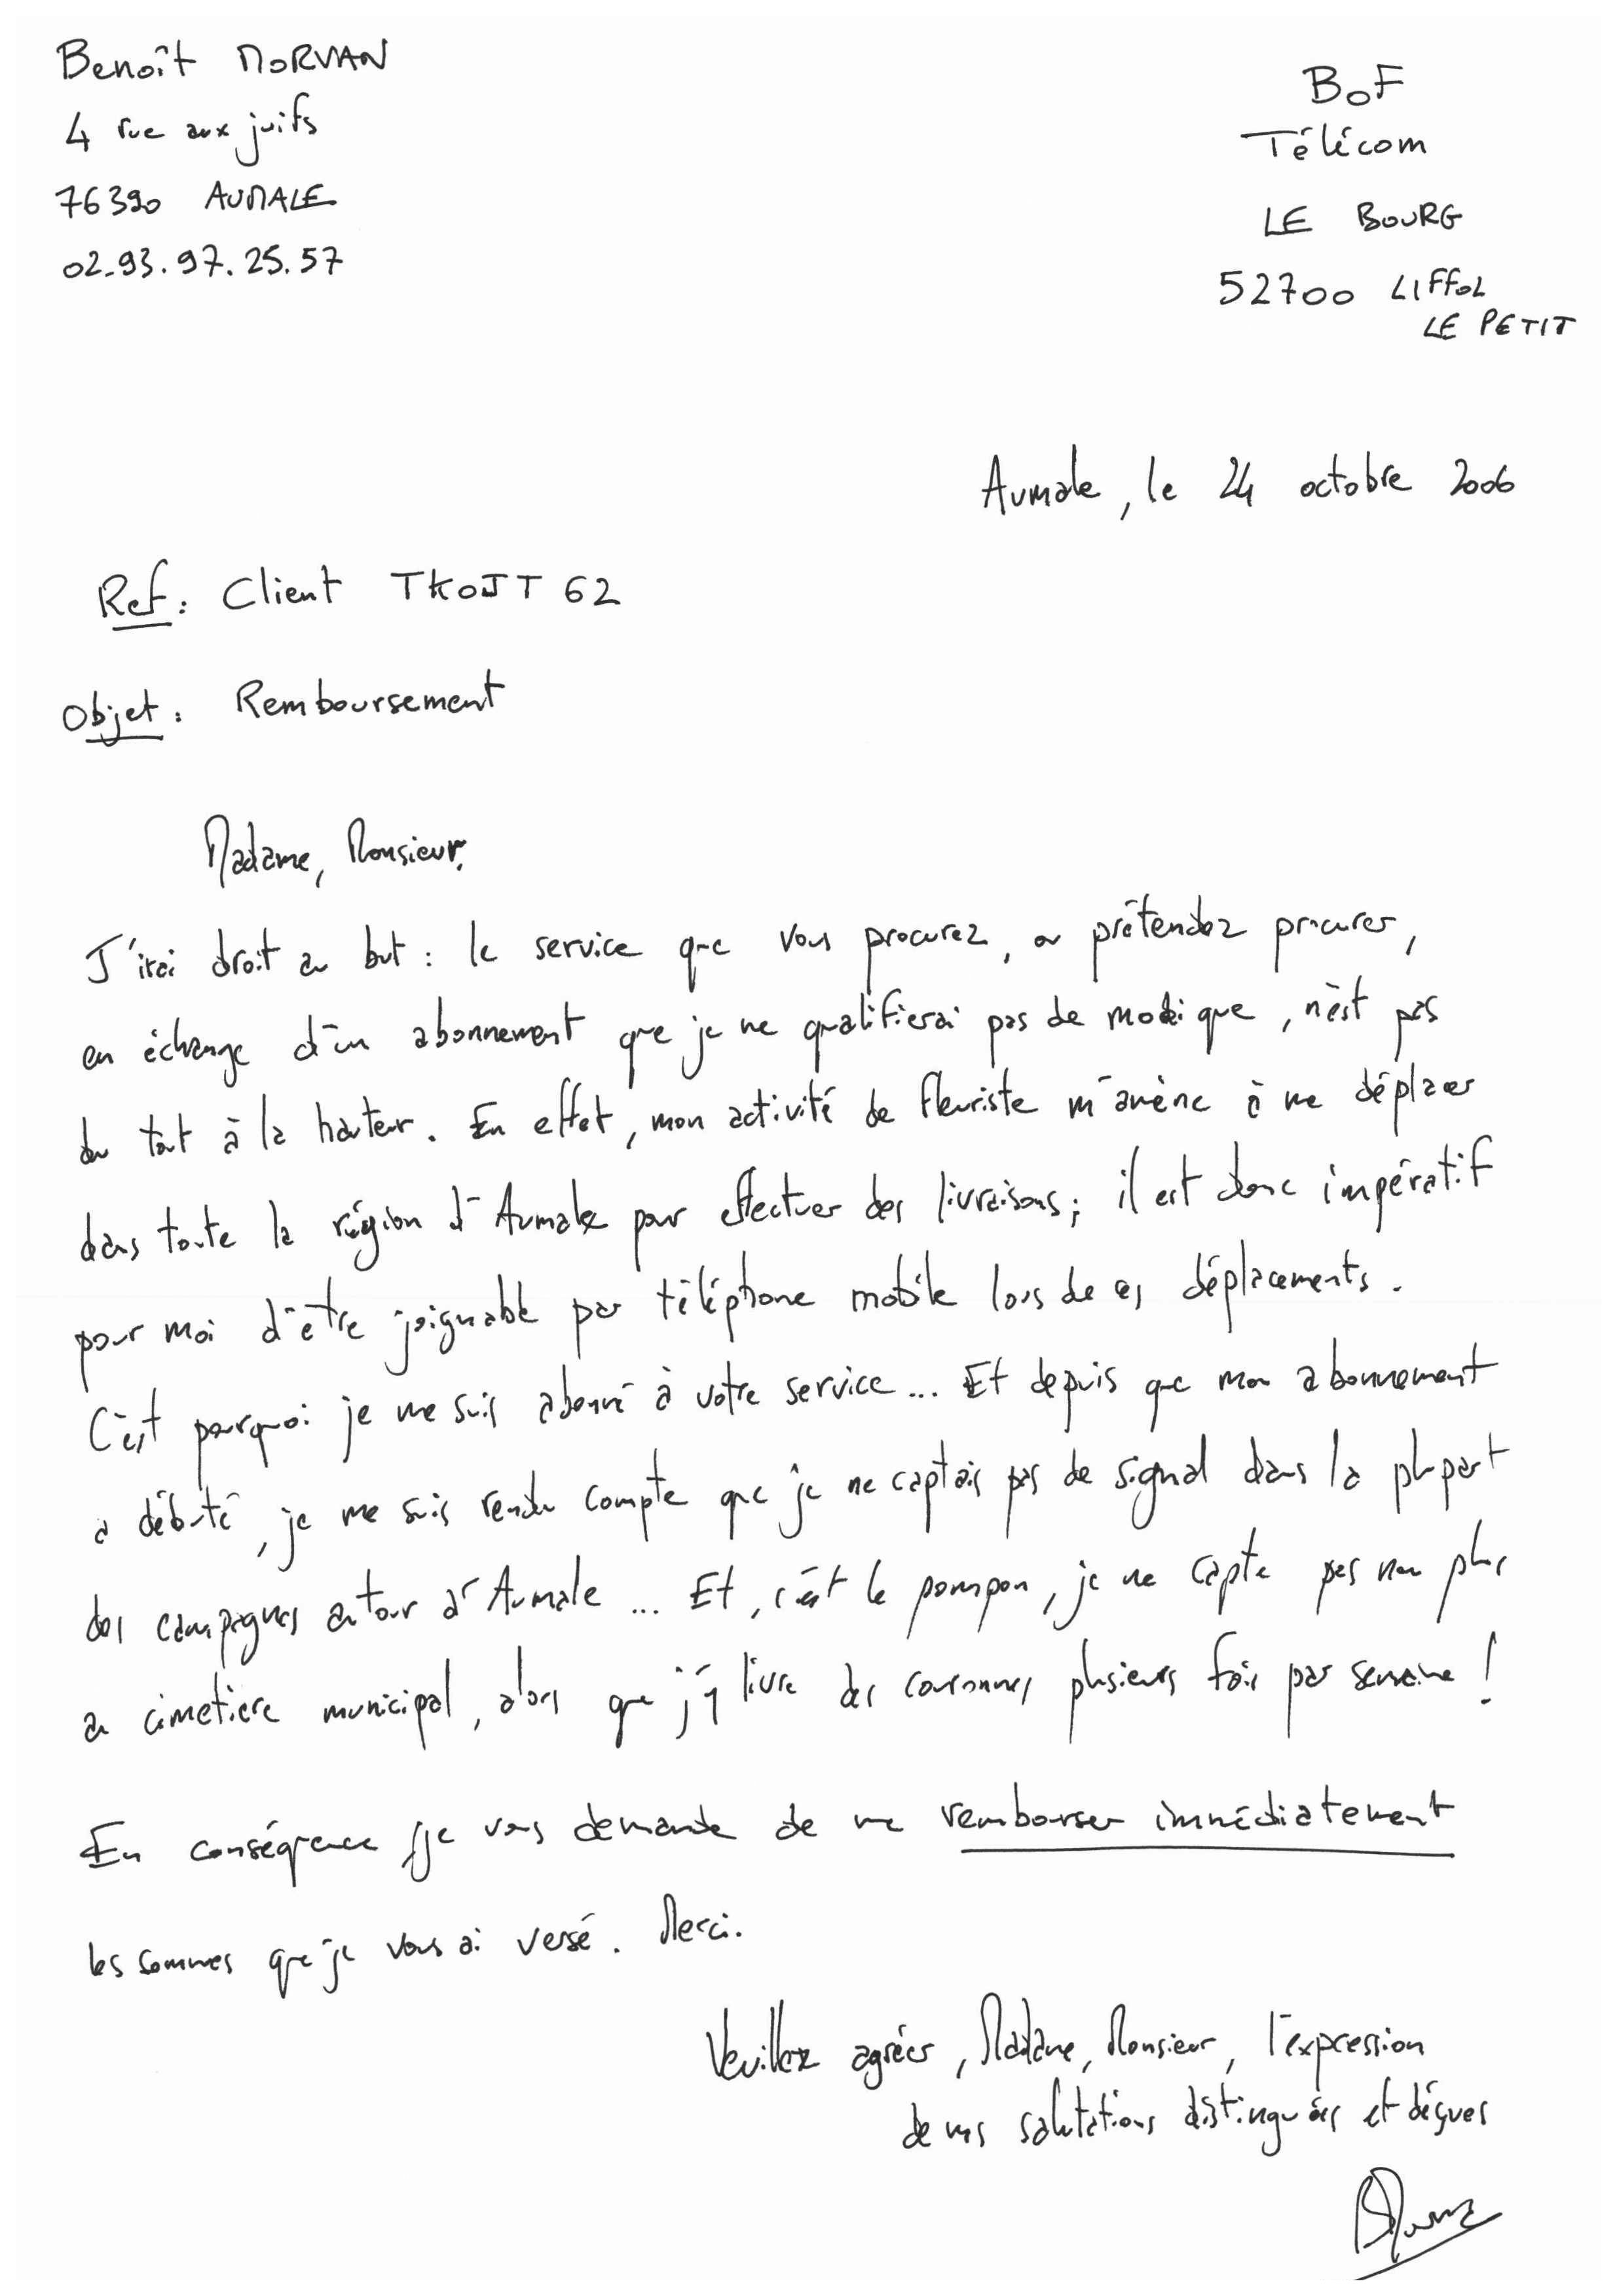 Benoît MORVAN
4 rue aux juifs
76390 AUMALE
02.93.97.25.57
BoF
Télécom
LE BOURG
52700 LIFFOL
LE PETIT
Aumale, le 24 octobre 2006
Ref : Client TKOJT62
Objet : Remboursement
Madame, Monsieur,
J'irai droit au but : le service que vous procurez, ou prétendez procurer,
en échange d'un abonnement que je ne qualifierai pas de modique, n'est pas
du tout à la hauteur. En effet, mon activité de fleuriste m'amène à me déplacer
dans toute la région d'Aumale pour effectuer des livraisons; il est donc impératif
pour moi d'être joignable par téléphone mobile lors de ces déplacements.
C'est pourquoi je me suis abonné à votre service... Et depuis que mon abonnement
a débuté, je me suis rendu compte que je ne captais pas de signal dans la plupart
des campagnes autour d'Aumale... Et, c'est le pompon, je ne capte pas non plus
au cimetière municipal, alors que j'y livre des couronnes plusieurs fois par semaine !
En conséquence je vous demande de me rembourser immédiatement
les sommes que je vous ai versé. Merci.
Veuillez agréer, Madame, Monsieur, l'expression
de mes salutations distinguées et déçues